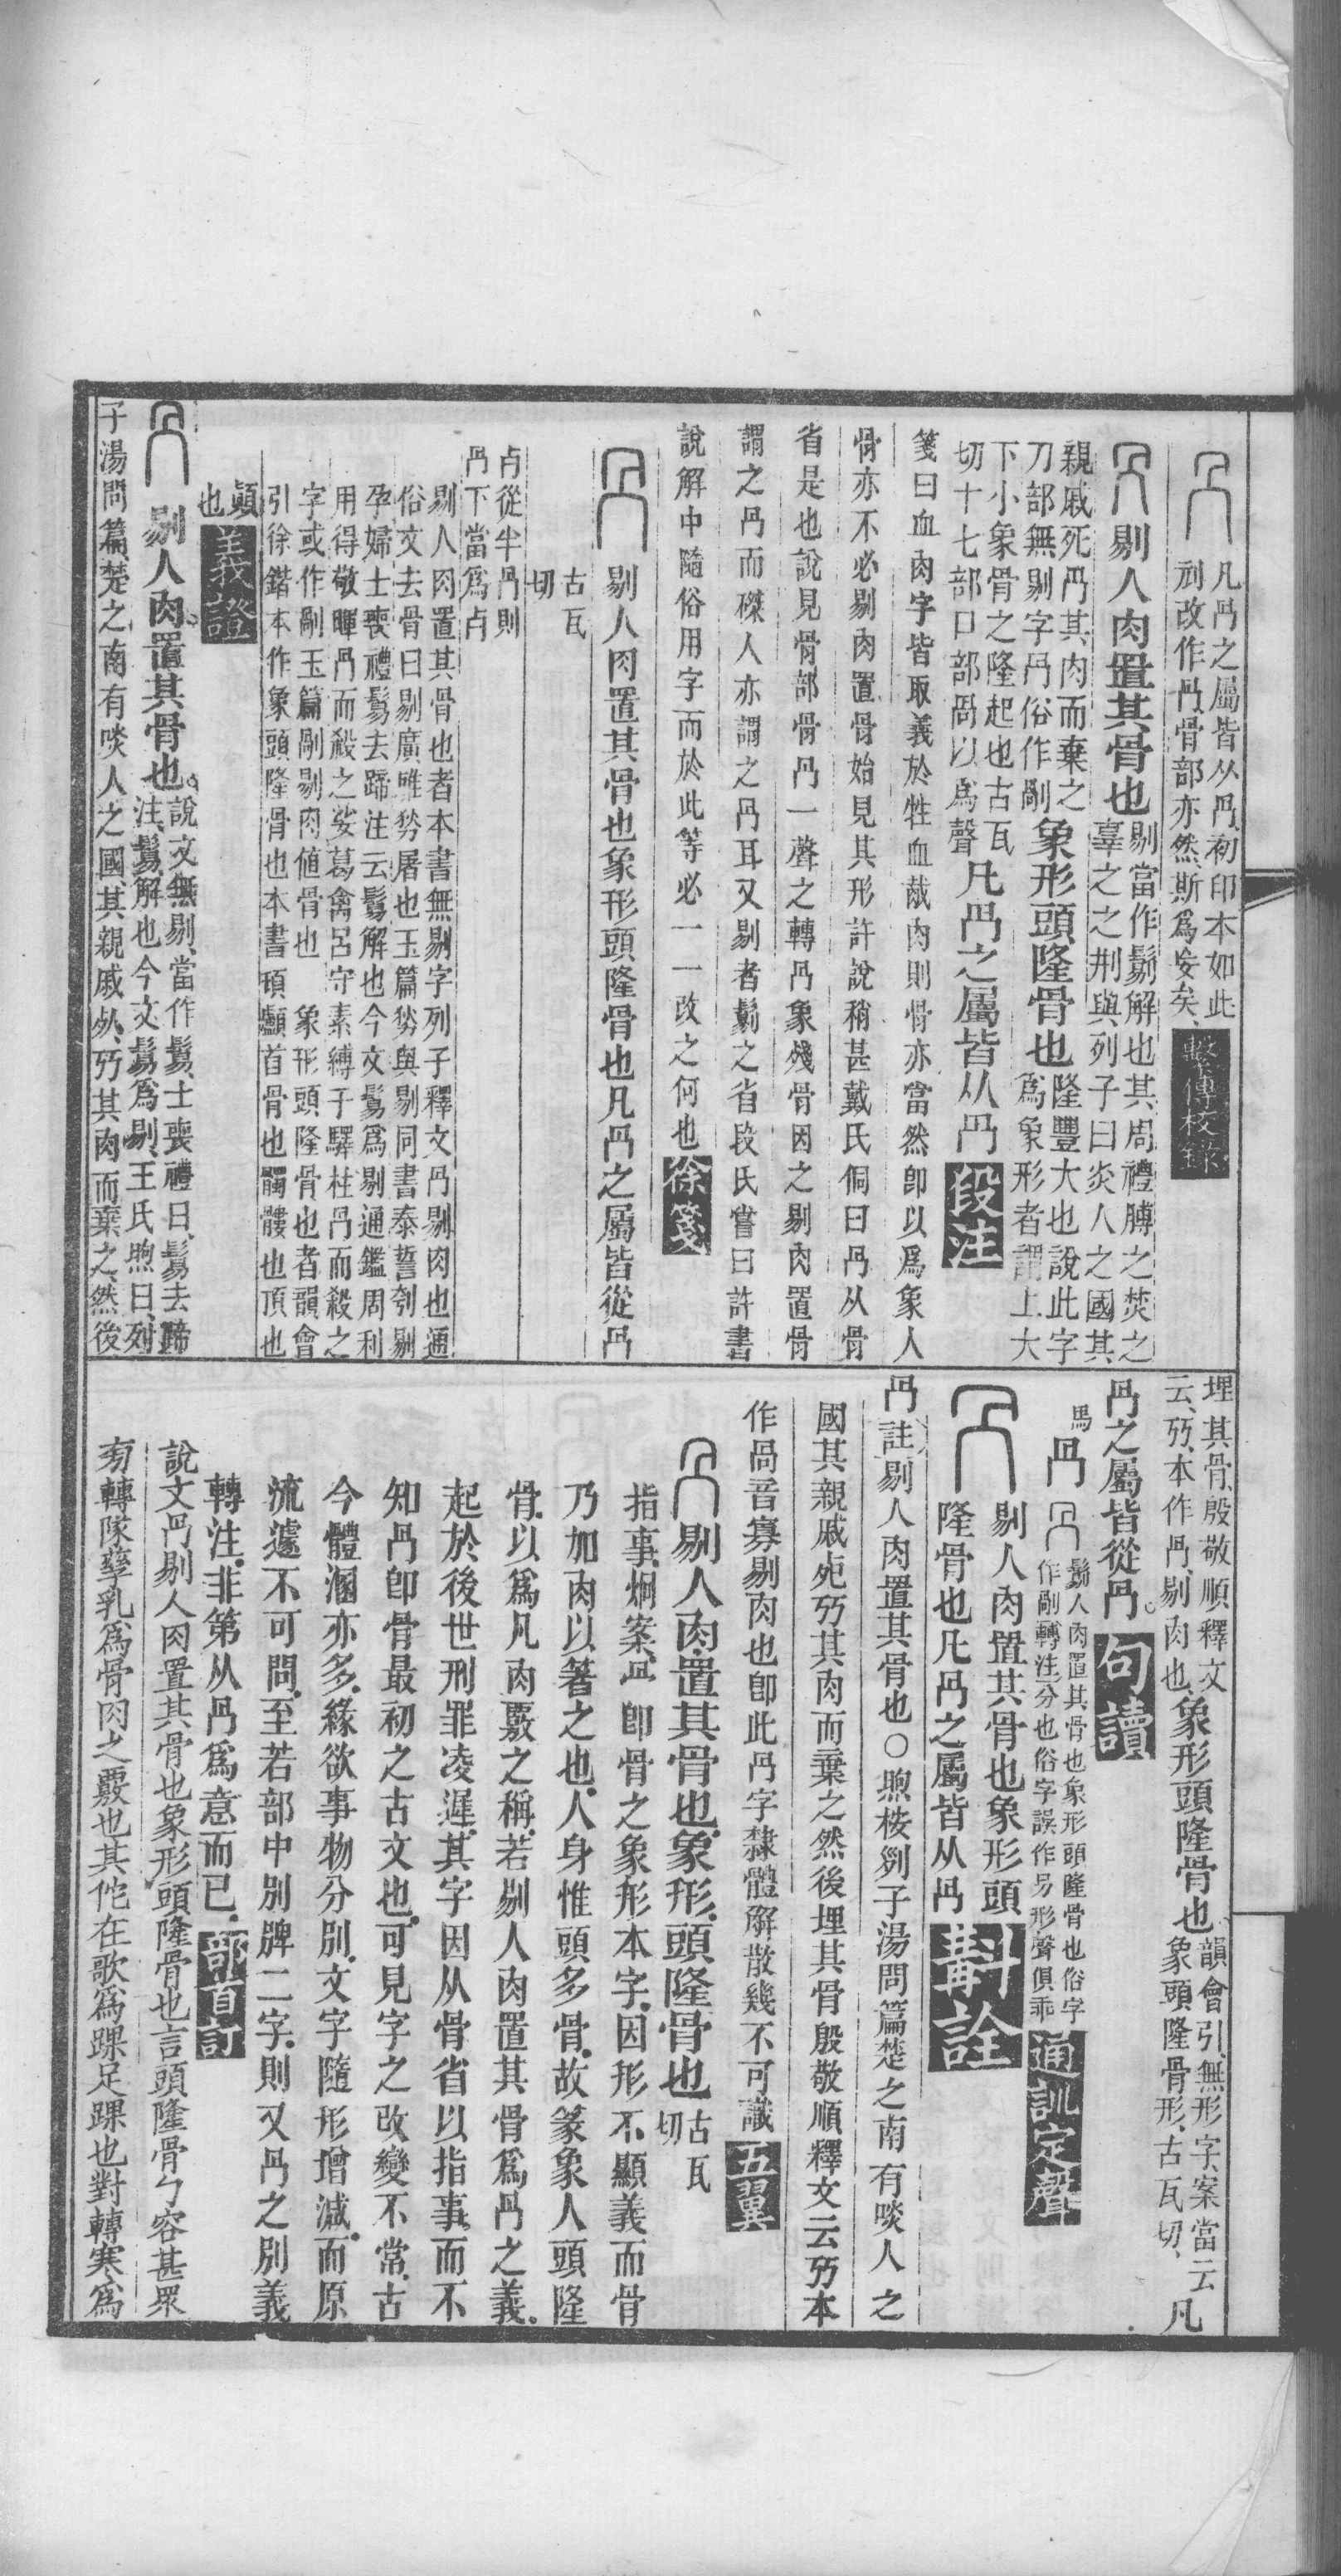 凡冎之屬皆从冎初印本如此
剜改作冎骨部亦然斯爲妄矣
繫傳校錄
剮人肉置其骨也
剮當作鬄解也其周禮膊之焚之
辜之之刑與列子曰炎人之國其
親戚死冎其肉而棄之
刀部無剔字冎俗作剮
象形頭隆骨也
隆豐大也說此字
爲象形者謂上大
下小象骨之隆起也古瓦
切十七部口部咼以爲聲
凡冎之屬皆从冎
段注
箋曰血肉字皆取義於牲血胾肉則骨亦當然卽以爲象人
骨亦不必剔肉置骨始見其形許說稍甚戴氏侗曰冎从骨
省是也說見骨部骨冎一聲之轉冎象殘骨因之剔肉置骨
謂之冎而磔人亦謂之冎耳又剔者鬄之省段氏嘗曰許書
說解中隨俗用字而於此等必一一改之何也
徐箋
剔人肉置其骨也象形頭隆骨也凡冎之屬皆從冎
古瓦
切
歺從半冎則
冎下當爲歺
剔人肉置其骨也者本書無剔字列子釋文冎剔肉也通
俗文去骨曰剔廣雅𠜶屠也玉篇𠜶與剔同書泰誓刳剔
孕婦士喪禮鬄去蹄注云鬄解也今文鬄爲剔通鑑周利
用得敬暉冎而殺之娑葛禽呂守素縛于驛柱冎而殺之
字或作剮玉篇剮剔肉値骨也 象形頭隆骨也者韻會
引徐鍇本作象頭隆骨也本書頊顱首骨也髑髏也頂也
顚
也
義證
剔人肉置其骨也
說文無剔當作鬄士喪禮曰鬄去蹄
注鬄解也今文鬄爲剔王氏煦曰列
子湯問篇楚之南有啖人之國其親戚死冎其肉而棄之然後
埋其骨殷敬順釋文
云冎本作冎剔肉也
象形頭隆骨也
韻會引無形字案當云凡
象頭隆骨形古瓦切
凡
冎之屬皆從冎
句讀
馬冎
鬄人肉置其骨也象形頭隆骨也俗字
作剮轉注分也俗字誤作另形聲俱乖
通訓定聲
剔人肉置其骨也象形頭
隆骨也凡冎之屬皆从冎
斠詮
冎註剔人肉置其骨也○煦桉列子湯問篇楚之南有啖人之
國其親戚死冎其肉而棄之然後埋其骨殷敬順釋文云冎本
作咼音寡剔肉也卽此冎字隸體解散幾不可識
五翼
剔人肉置其骨也象形頭隆骨也
古瓦
切
指事烱案冎卽骨之象形本字因形不顯義而骨
乃加肉以箸之也人身惟頭多骨故篆象人頭隆
骨以爲凡肉覈之稱若剔人肉置其骨爲冎之義
起於後世刑罪凌遲其字因从骨省以指事而不
知冎卽骨最初之古文也可見字之改變不常古
今體溷亦多緣欲事物分別文字隨形增減而原
流遽不可問至若部中別牌二字則又冎之別義
轉注非第从冎爲意而已
部首訂
說文冎剔人肉置其骨也象形頭隆骨也言頭隆骨勹容甚眾
㫄轉隊孳乳爲骨肉之覈也其佗在歌爲踝足踝也對轉寒爲